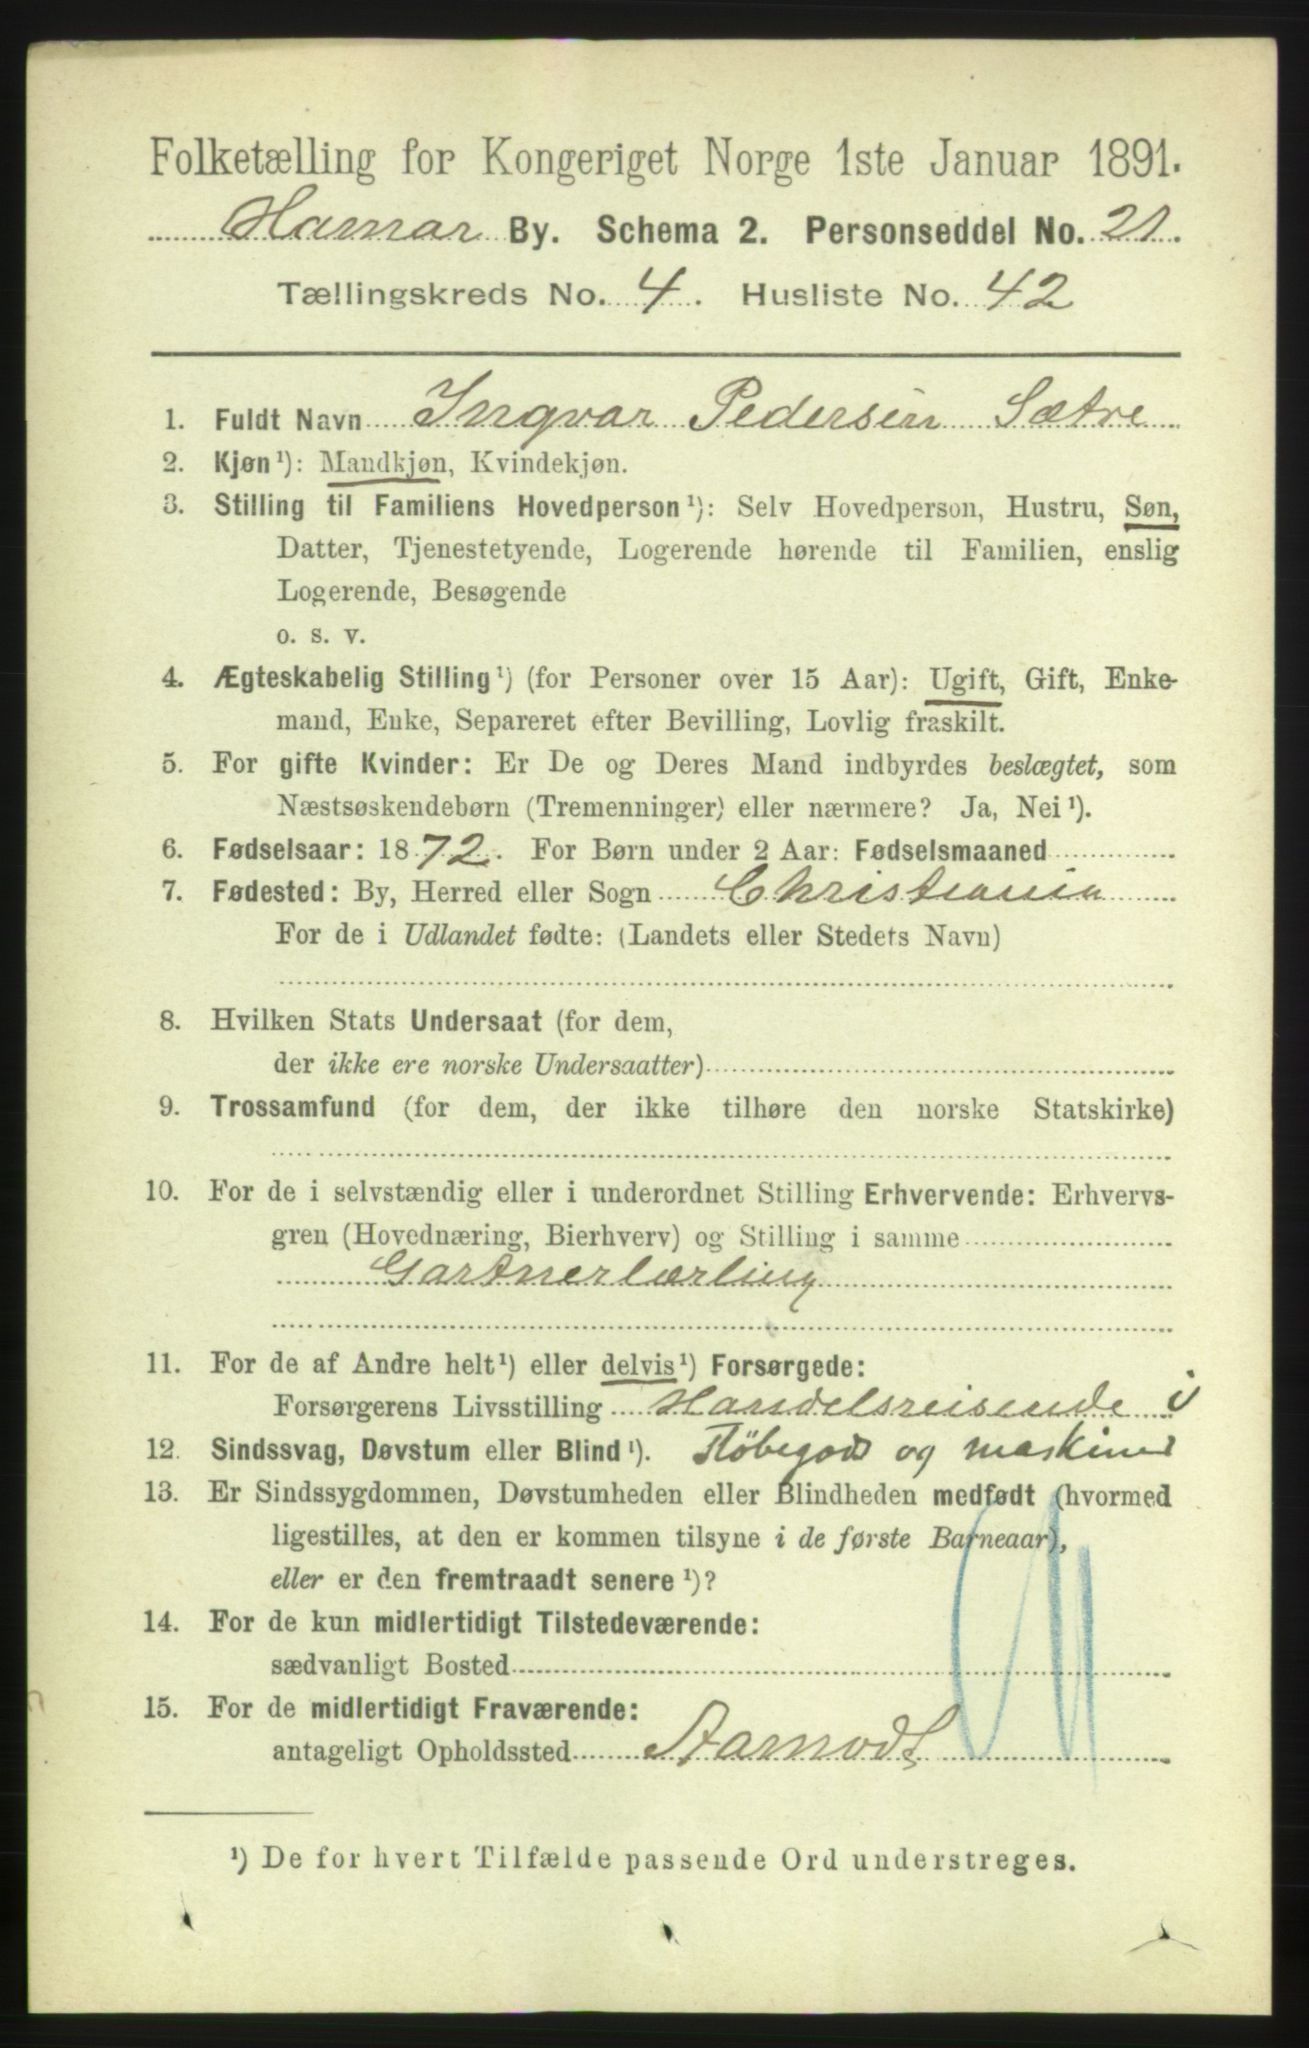 Folketælling for Kongeriget Norge 1ste Januar 1891.
Hamar By. Schema 2. Personseddel No. 21.
Tællingskreds No. 4. Husliste No. 42
1. Fuldt Navn Ingvar Pedersen Sætre
2. Kjøn¹): Mandkjøn, Kvindekjøn.
3. Stilling til Familiens Hovedperson¹): Selv Hovedperson, Hustru, Søn,
Datter, Tjenestetyende, Logerende hørende til Familien, enslig
Logerende, Besøgende
o. s. v.
4. Ægteskabelig Stilling¹) (for Personer over 15 Aar): Ugift, Gift, Enke-
mand, Enke, Separeret efter Bevilling, Lovlig fraskilt.
5. For gifte Kvinder: Er De og Deres Mand indbyrdes beslægtet, som
Næstsøskendebørn (Tremenninger) eller nærmere? Ja, Nei¹).
6. Fødselsaar: 1872. For Børn under 2 Aar: Fødselsmaaned
7. Fødested: By, Herred eller Sogn Christiania
For de i Udlandet fødte: (Landets eller Stedets Navn)
8. Hvilken Stats Undersaat (for dem,
der ikke ere norske Undersaatter)
9. Trossamfund (for dem, der ikke tilhøre den norske Statskirke)
10. For de i selvstændig eller i underordnet Stilling Erhvervende: Erhvervs-
gren (Hovednæring, Bierhverv) og Stilling i samme
Gartnerlærling
11. For de af Andre helt¹) eller delvis¹) Forsørgede:
Forsørgerens Livsstilling Handelsreisende i
12. Sindssvag, Døvstum eller Blind¹). Støbegods og maskiner
13. Er Sindssygdommen, Døvstumheden eller Blindheden medfødt (hvormed
ligestilles, at den er kommen tilsyne i de første Barneaar),
eller er den fremtraadt senere¹)?
14. For de kun midlertidigt Tilstedeværende:
sædvanligt Bosted
15. For de midlertidigt Fraværende:
antageligt Opholdssted Aarnods
¹) De for hvert Tilfælde passende Ord understreges.